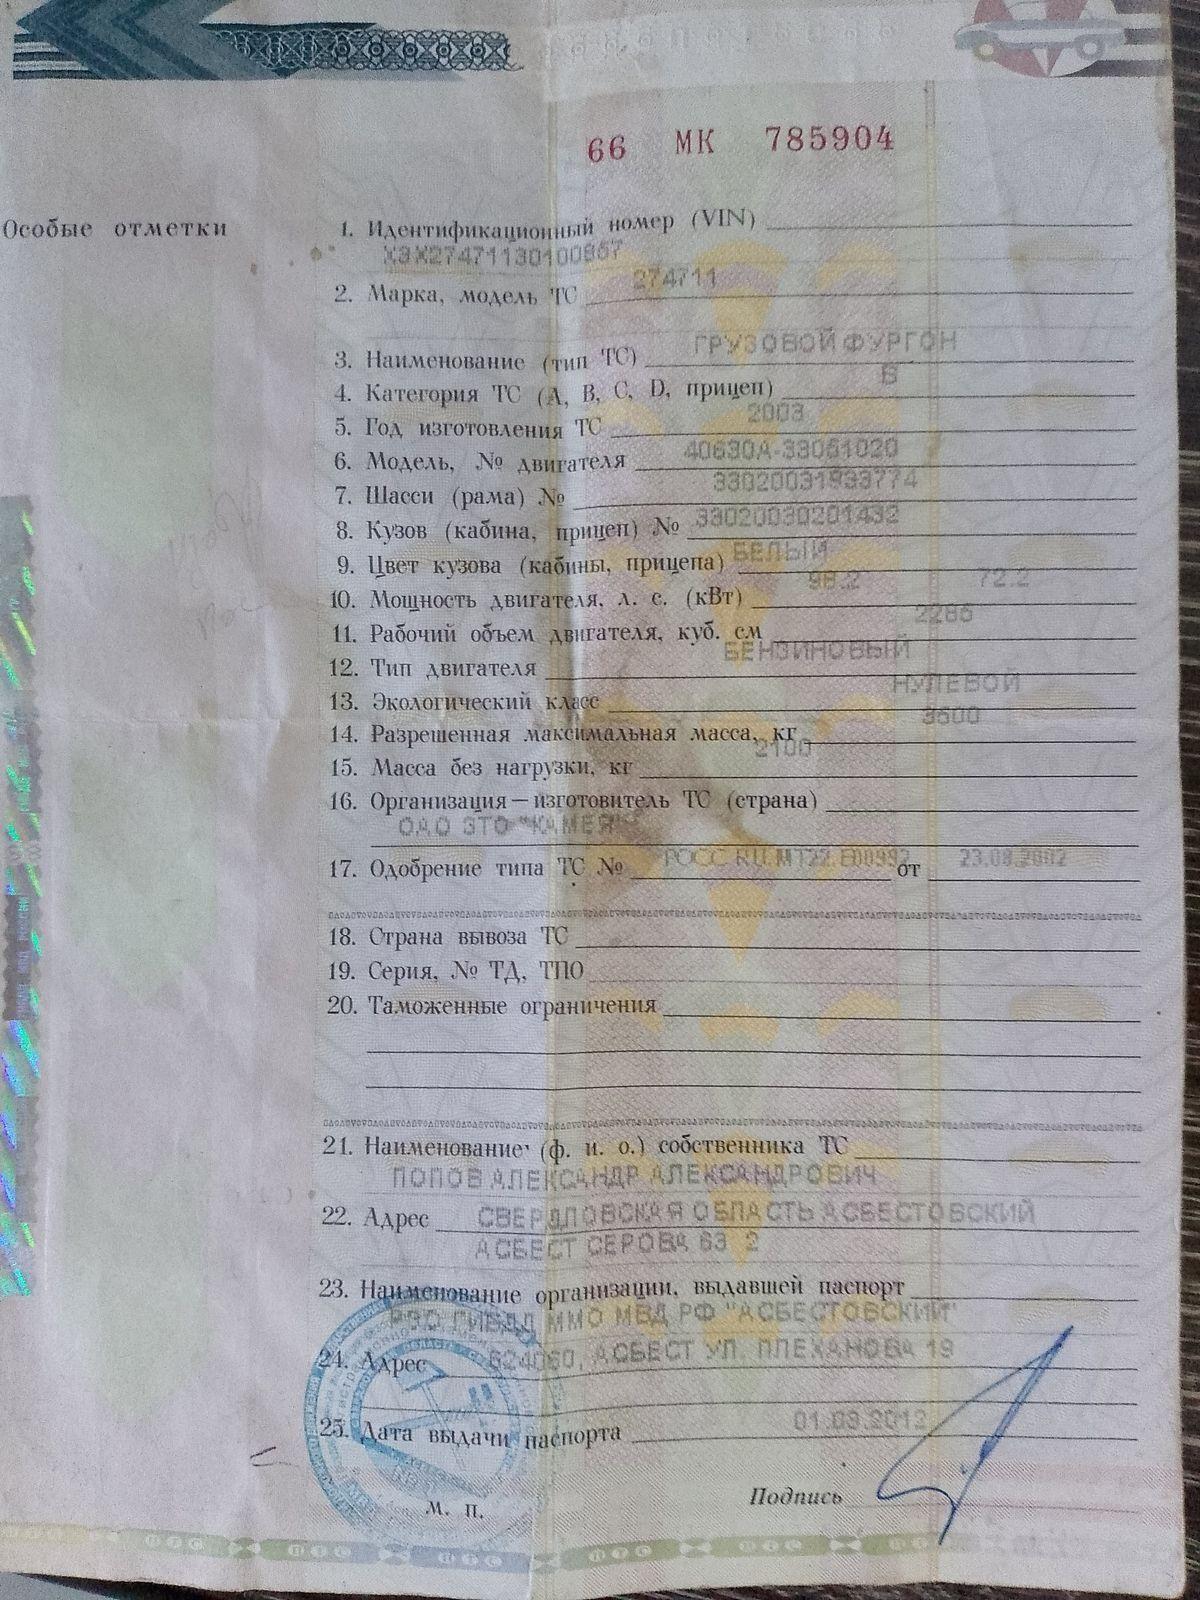 66 МК 785904
Особые отметки
1. Идентификационный номер (VIN)
X3X27471130100867
2. Марка, модель ТС 274711
3. Наименование (тип ТС) ГРУЗОВОЙ ФУРГОН
4. Категория ТС (A, B, C, D, прицеп) B
5. Год изготовления ТС 2003
6. Модель, № двигателя 40630А-33061020
7. Шасси (рама) № 33020031933774
8. Кузов (кабина, прицеп) № 33020030201432
9. Цвет кузова (кабины, прицепа) БЕЛЫЙ
10. Мощность двигателя, л. с. (кВт) 98.2 72.2
11. Рабочий объем двигателя, куб. см 2285
12. Тип двигателя БЕНЗИНОВЫЙ
13. Экологический класс НУЛЕВОЙ
14. Разрешенная максимальная масса, кг 3500
15. Масса без нагрузки, кг 2100
16. Организация—изготовитель ТС (страна)
ОАО ЗТО "КАМЕЯ"
17. Одобрение типа ТС № РОСС RU.MT22.E00992 от 23.08.2002
18. Страна вывоза ТС
19. Серия, № ТД, ТПО
20. Таможенные ограничения
21. Наименование (ф. и. о.) собственника ТС
ПОПОВ АЛЕКСАНДР АЛЕКСАНДРОВИЧ
22. Адрес СВЕРДЛОВСКАЯ ОБЛАСТЬ АСБЕСТОВСКИЙ
АСБЕСТ СЕРОВА 63 2
23. Наименование организации, выдавшей паспорт
РЭО ГИБДД ММО МВД РФ "АСБЕСТОВСКИЙ"
24. Адрес 624060, АСБЕСТ УЛ. ПЛЕХАНОВА 19
25. Дата выдачи паспорта 01.03.2012
Подпись
М. П.
ПТС ПТС ПТС ПТС ПТС